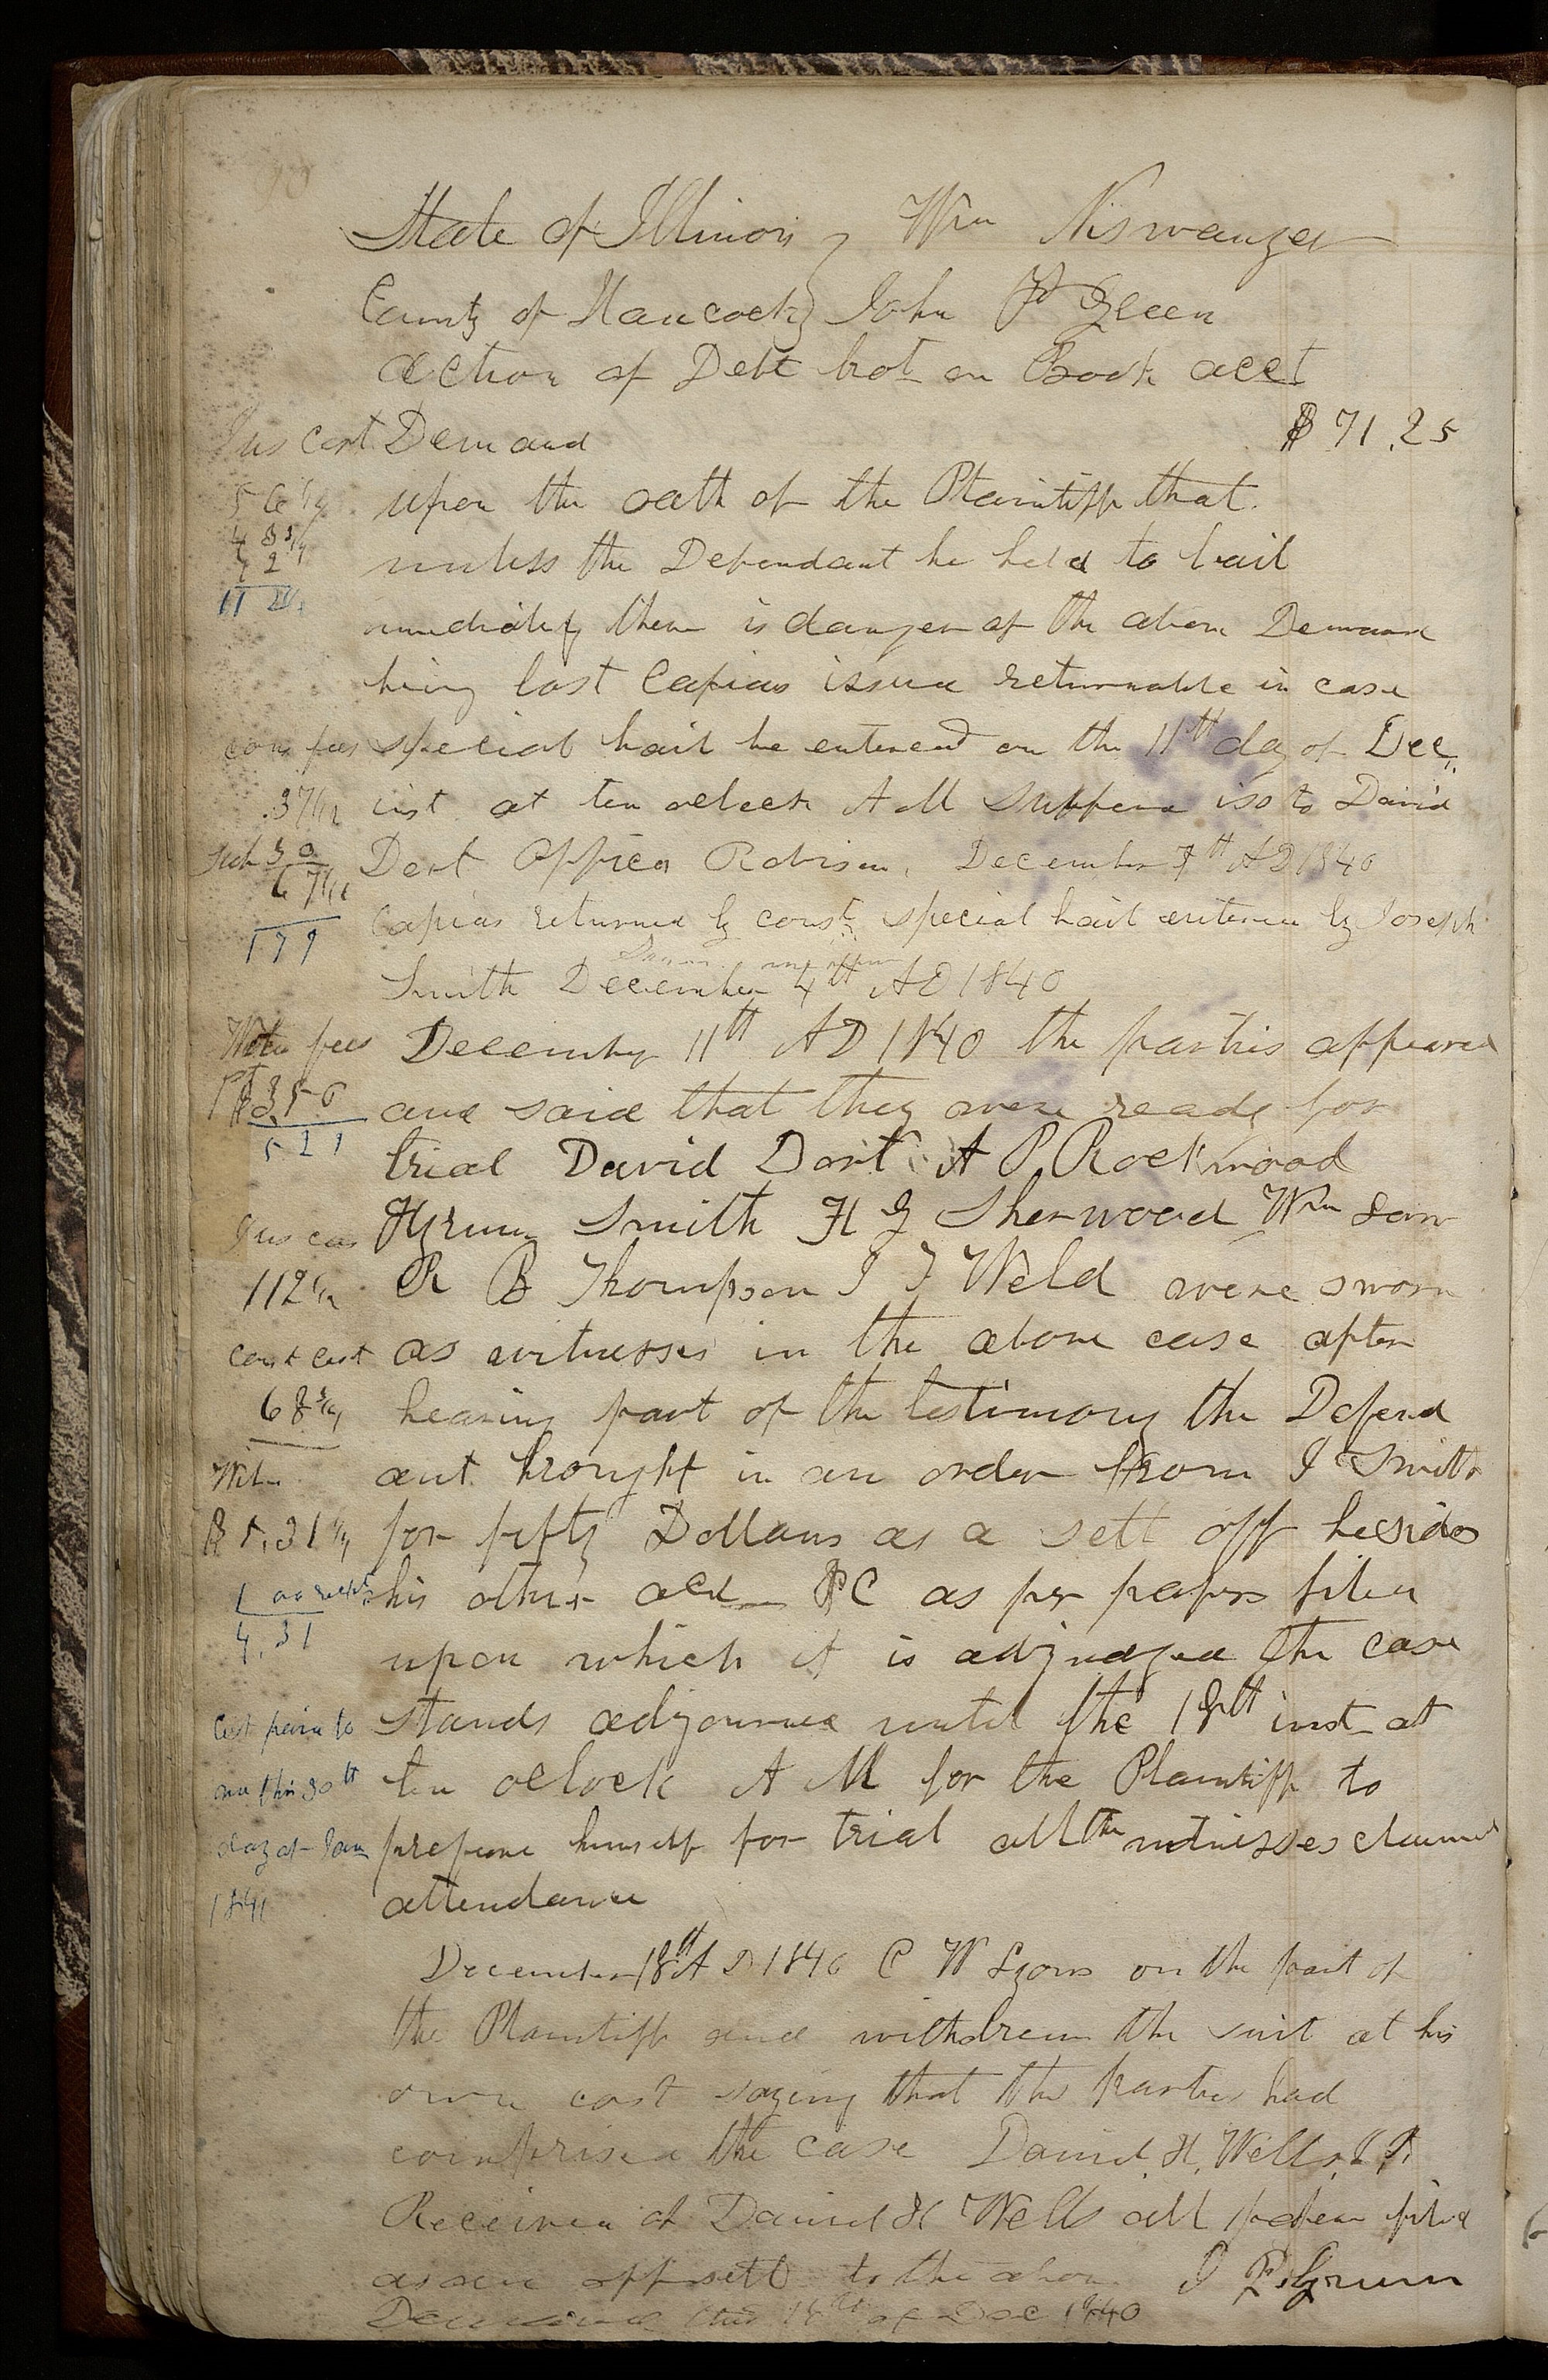 State of Illinois } Wm Niswanger
County of Hancock } John P Green
action of Debt brot on Book acct
Jus cost Demand $71.25
5 6 1/4 upon the oath of the Plaintiff that
unless the Defendant be held to bail
immediatly there is danger of the above Demand
being lost Capias issued returnable in case
cons fees special bail be entered on the 11th day of Dec.
.37 1/2 inst at ten oclock A M Suppena iso to David
Dort Officer Robison. December 7th AD 1840
Capias returned by const special bail entered by Joseph
1 9 9
Smith December 4th AD 1840
Witn fees December 11th AD 1840 the partis appeared
and said that they were ready for
trial David Dort A P Rockwood
Jus cos Hyrum Smith H G Sherwood Wm Law
112 1/2 R B Thompson J F Weld were sworn
const cost as witnesses in the above case after
68 3/4 hearing part of the testimony the Defend
Witn ant brought in an order from J Smith
$5.31 1/4 for fifty Dollars as a sett off besides
his other acct as per papers filed
4.31
upon which it is adjudged the case
Cost paid to stands adjourned until the 18th inst at
me this 30th ten oclock A M for the Plaintiff to
day of Jan prepare himself for trial all the witnesses claimed
1841 attendance
December 18th A D 1840 C W Lyons on the part of
the Plaintiff and withdrew the suit at his
own cost saying that the parties had
comprised the case Daniel H. Wells J P.
Received of Daniel H Wells all papers filed
as an off sett to the above J P Green
this 18th of Dec 1840